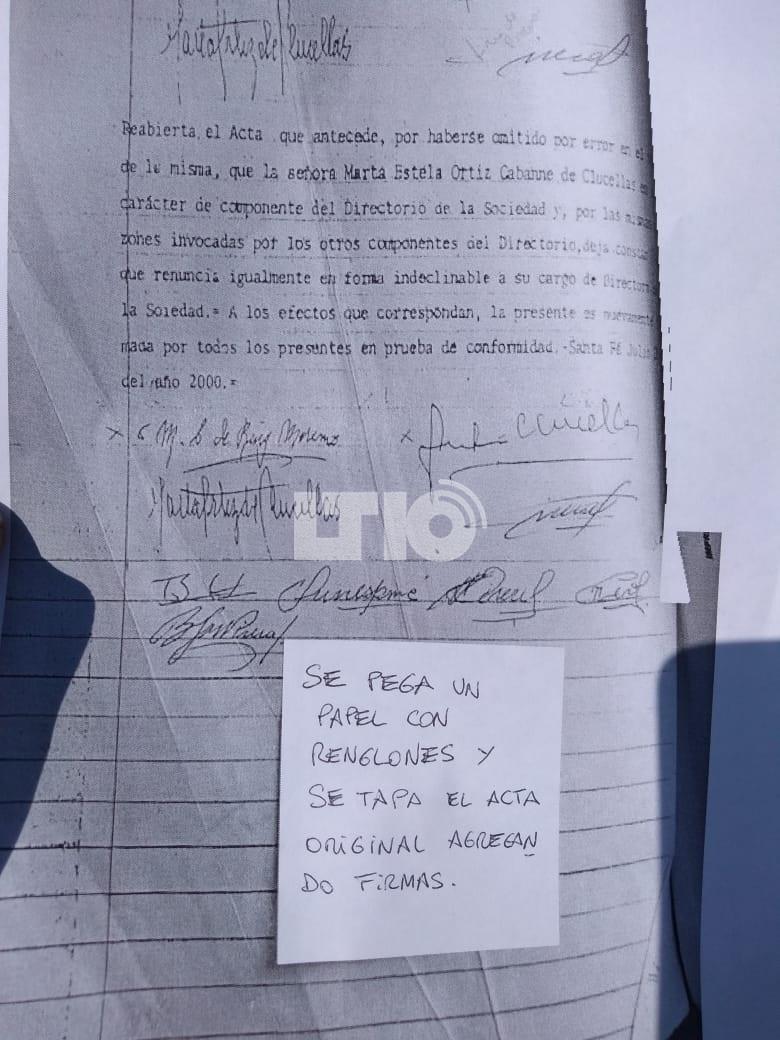 Reabierta el Acta que antecede, por haberse omitido por error en el
de la misma, que la señora Marta Estela Ortiz Cabanne de Clucellas en
carácter de componente del Directorio de la Sociedad y, por las mismas
zones invocadas por los otros componentes del Directorio, deja const
que renuncia igualmente en forma indeclinable a su cargo de Director
la Soiedad.= A los efectos que correspondan, la presente es nuevamente
mada por todos los presentes en prueba de conformidad.-Santa Fé Julio
del año 2000.=
LT10
SE PEGA UN
PAPEL CON
RENGLONES Y
SE TAPA EL ACTA
ORIGINAL AGREGAN
DO FIRMAS.